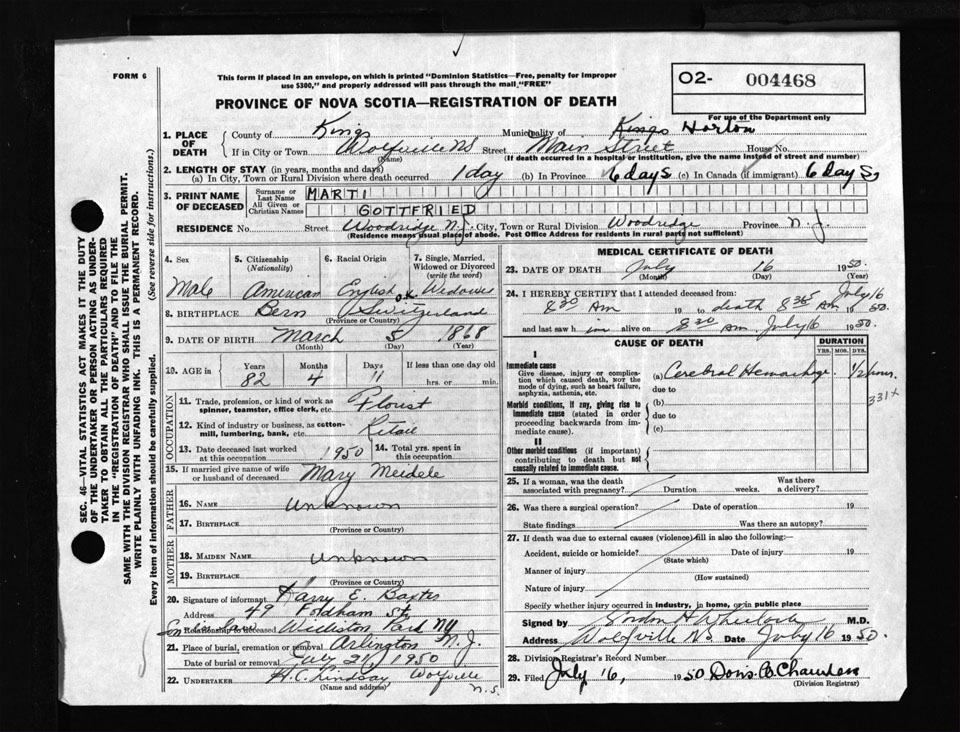 FORM 6
This form if placed in an envelope, on which is printed "Dominion Statistics—Free, penalty for improper
use $300," and properly addressed will pass through the mail "FREE"
O2- 004468
For use of the Department only
PROVINCE OF NOVA SCOTIA—REGISTRATION OF DEATH
1. PLACE OF DEATH County of Kings Municipality of Kings Horton
If in City or Town Wolfville NS Street Main Street House No.
(Name) (If death occurred in a hospital or institution, give the name instead of street and number)
2. LENGTH OF STAY (in years, months and days)
(a) In City, Town or Rural Division where death occurred 1 day (b) In Province 6 days (c) In Canada (if immigrant) 6 days
3. PRINT NAME OF DECEASED Surname or Last Name MARTI
All Given or Christian Names GOTTFRIED
RESIDENCE No. Street Woodridge N.J. City, Town or Rural Division Woodridge Province N.J.
(Residence means usual place of abode. Post Office Address for residents in rural parts not sufficient)
4. Sex 5. Citizenship (Nationality) 6. Racial Origin 7. Single, Married, Widowed or Divorced (write the word)
Male American English OK Widower
8. BIRTHPLACE Bern Switzerland
(Province or Country)
9. DATE OF BIRTH March 5 1868
(Month) (Day) (Year)
10. AGE in Years Months Days If less than one day
82 4 11 hrs. or min.
OCCUPATION
11. Trade, profession, or kind of work as
spinner, teamster, office clerk, etc. Florist
12. Kind of industry or business, as cotton-
mill, lumbering, bank, etc. Retail
13. Date deceased last worked at this occupation 1950 14. Total yrs. spent in this occupation
15. If married give name of wife or husband of deceased Mary Meidele
FATHER
16. NAME Unknown
17. BIRTHPLACE
(Province or Country)
MOTHER
18. MAIDEN NAME Unknown
19. BIRTHPLACE
(Province or Country)
20. Signature of informant Harry E. Baxter
Address 49 Fordham St.
Relationship to deceased Son in law Williston Park NY
21. Place of burial, cremation or removal Arlington N.J.
Date of burial or removal July 21, 1950
22. UNDERTAKER H.C. Lindsay, Wolfville N.S.
(Name and address)
MEDICAL CERTIFICATE OF DEATH
23. DATE OF DEATH July 16 1950.
(Month) (Day)
24. I HEREBY CERTIFY that I attended deceased from: July 16
8 30 AM 19 to death 8 35 AM 1950.
and last saw him alive on 8 30 AM. July 16 1950.
CAUSE OF DEATH DURATION
YRS. MOS. DYS.
I
Immediate cause
Give disease, injury or complica-
tion which caused death, not the
mode of dying, such as heart failure,
asphyxia, asthenia, etc.
(a) Cerebral Hemorrhage 1/2 hour.
due to
331X
Morbid conditions, if any, giving rise to
immediate cause (stated in order
proceeding backwards from im-
mediate cause).
(b)
due to
(c)
II
Other morbid conditions (if important)
contributing to death but not
causally related to immediate cause.
25. If a woman, was the death associated with pregnancy? Duration weeks. Was there a delivery?
26. Was there a surgical operation? Date of operation 19
State findings Was there an autopsy?
27. If death was due to external causes (violence) fill in also the following:—
Accident, suicide or homicide? Date of injury 19
(State which)
Manner of injury
(How sustained)
Nature of injury
Specify whether injury occurred in industry, in home, or in public place
Signed by Gordon H Wheelock M.D.
Address Wolfville NS. Date July 16 1950.
28. Division Registrar's Record Number
29. Filed July 16, 1950 Doris B. Chambers
(Division Registrar)
SEC. 46—VITAL STATISTICS ACT MAKES IT THE DUTY
OF THE UNDERTAKER OR PERSON ACTING AS UNDER-
TAKER TO OBTAIN ALL THE PARTICULARS REQUIRED
IN THE "REGISTRATION OF DEATH" AND TO FILE THE
SAME WITH THE DIVISION REGISTRAR WHO SHALL ISSUE THE BURIAL PERMIT.
WRITE PLAINLY WITH UNFADING INK. THIS IS A PERMANENT RECORD.
Every item of information should be carefully supplied. (See reverse side for instructions.)